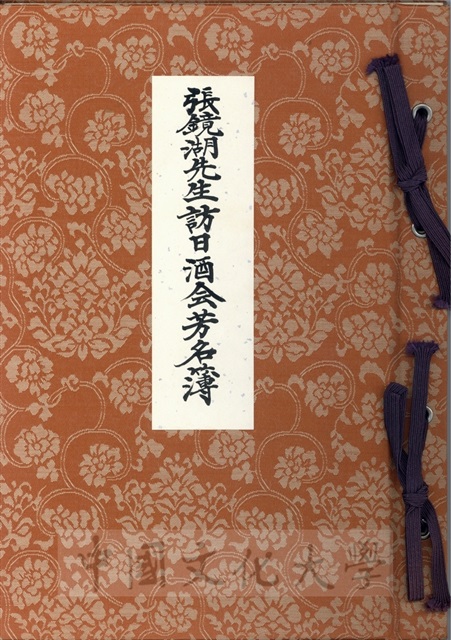 張鏡湖先生訪日酒会芳名簿
中國文化大學